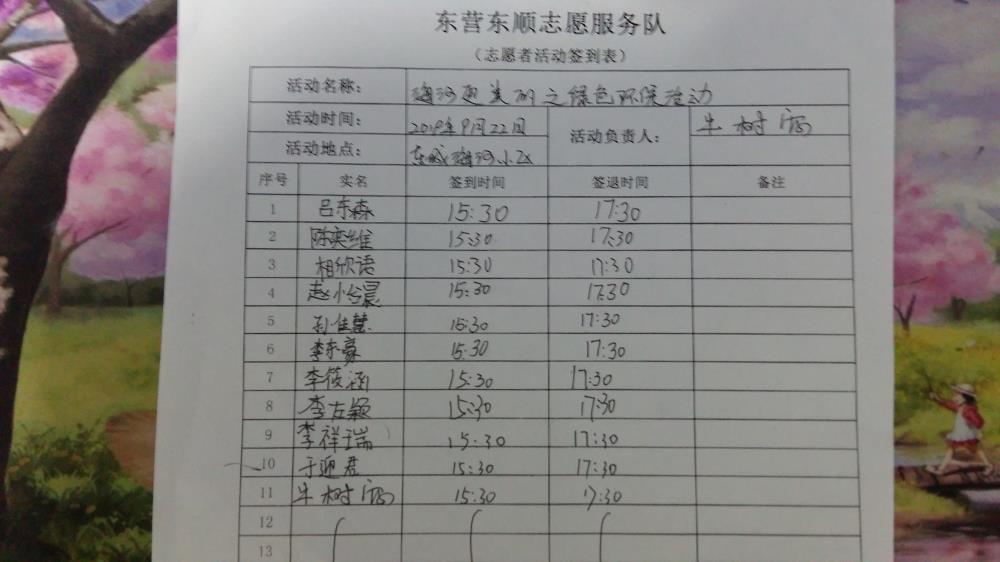 东营东顺志愿服务队
（志愿者活动签到表）
活动名称： 美丽之绿色环保活动
活动时间： 2019年9月22日 活动负责人： 牛树
活动地点： 东城 小区
序号 实名 签到时间 签退时间 备注
1 吕东森 15:30 17:30
2 陈奕维 15:30 17:30
3 相欣语 15:30 17:30
4 赵小晨 15:30 17:30
5 孙佳慧 15:30 17:30
6 李东豪 15:30 17:30
7 李筱涵 15:30 17:30
8 李左颖 15:30 17:30
9 李祥瑞 15:30 17:30
10 于迎君 15:30 17:30
11 牛树 15:30 17:30
12
13